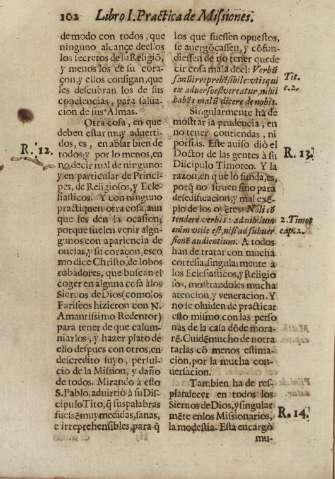 102 Libro I. Practica de Missiones.
de modo con todos, que
ninguno alcance deellos
los secretos de la Religiõ,
y menos los de su cora-
çon, y ellos consigan, que
les descubran los de sus
conciencias, para salua-
cion de sus Almas.
R. 12.
Otra cosa, en que
deben estar muy aduerti-
dos, es, en ablar bien de
todos, y por lo menos, en
no decir mal de ninguno
y en particular de Princi-
pes, de Religiosos, y Ecle-
siasticos. Y con ninguno
practiquen otra cosa, aun
que les den la ocasion;
porque suelen venir algu-
gunos con apariencia de
ouejas, y su coraçon, esco-
mo dice Christo, de lobos
robadores, que buscan el
coger en alguna cosa à los
Sieruos de Dios (como los
Fariseos hizieron con N.
Amantissimo Redentor)
para tener de que calum-
niarlos, y hazer plato de
ello despues con otros, en
descredito suyo, perjui-
cio de la Mission, y daño
de todos. Mirando à esto
S. Pablo, aduirtiò à su Dis-
cipulo Tito, q̃ sus palabras
fuessẽ muy medidas, sanas,
è irreprehensibles, para q̃
los que fuessen opuestos,
se auergõcassen, y cõfun-
diessen de no tener que de
cir cosa mala dèl: Verbũ
sanũ irreprehẽsibile: vt is qui
ex aduerso est vereatur, nihil
habẽs malũ dicere de nobis.
Tit.
c. 2.
Singularmente ha de
mostrar la prudencia, en
no tener contiendas, ni
porfias. Este auiso diò el
Doctor de las gentes à su
Discipulo Timoteo. Y la
razon, en què lo funda, es,
R. 13.
porq̃ no siruen sino para
desedificacion, y mal exẽ-
plo de los oyẽtes: Noli cõ
tendere verbis: ad nihil enim
vtile est, nisi ad subuer
sionẽ audientium. A todos
2. Timot
cap. 2.
han de tratar con mucha
cortesia, singularmente à
los Eclesiasticos, y Religio
sos, mostrandoles mucha
atencion, y veneracion. Y
no se oluiden de practicar
esto mismo con las perso
nas de la casa dõde mora-
rẽ. Cuidẽ mucho de no tra
tarlas cõ menos estima-
cion, por la mucha con-
uersacion.
Tambien ha de res-
plandecer en todos los
Sieruos de Dios, y singular
mẽte en los Missionarios,
la modestia. Esta encargò
R. 14.
mu-